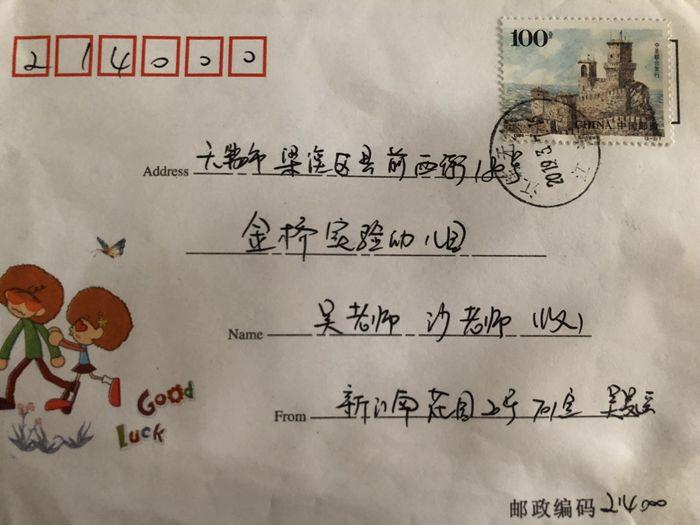 214000
100分
中圣联合发行
CHINA 中国邮政
2019.3
Address 无锡市梁溪区县前西街
金桥实验幼儿园
Name 吴老师 沙老师 (收)
From 新江南花园2号701室 吴
Good
Luck
邮政编码 214000